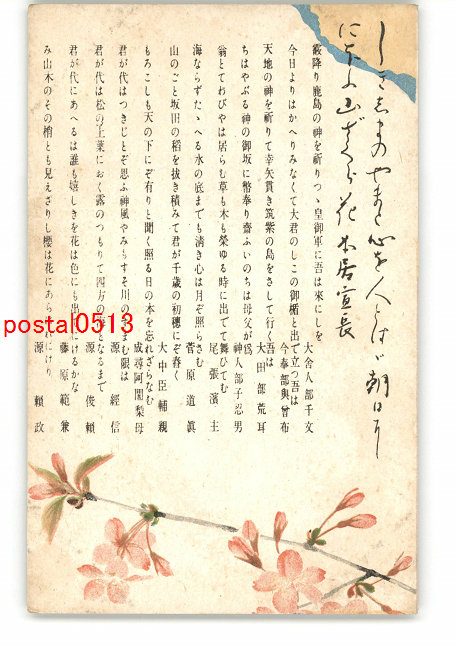 しきしまのやまと心を人とはゞ朝日に
にほふ山ざくら花 本居宣長
霰降り鹿島の神を祈りつゝ皇御軍に吾は來にしを 大舍人部千文
今日よりはかへりみなくて大君のしこの御楯と出で立つ吾は 今奉部與曾布
天地の神を祈りて幸矢貫き筑紫の島をさして行く吾は 大田部荒耳
ちはやぶる神の御坂に幣奉り齋ふいのちは母父が爲 神人部子忍男
翁とてわびやは居らむ草も木も榮ゆる時に出でて舞ひてむ 尾張濱主
海ならずたゝへる水の底までも淸き心は月ぞ照らさむ 菅原道眞
山のごと坂田の稻を拔き積みて君が千歳の初穗にぞ舂く 大中臣輔親
もろこしも天の下にぞ有りと聞く照る日の本を忘れざらなむ 成尋阿闍梨母
君が代はつきじとぞ思ふ神風やみもすそ川のすまむ限は 源經信
君が代は松の上葉におく露のつもりて四方の海となるまで 源俊賴
君が代にあへるは誰も嬉しきを花は色にも出でにけるかな 藤原範兼
み山木のその梢とも見えざりし櫻は花にあらはれにけり 源賴政
postal0513